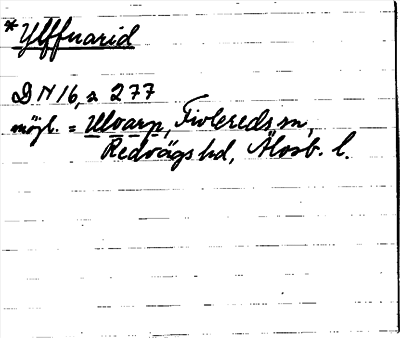 *Ylffuarid
DN 16, s. 277
möjl. = Ulvarp, Tivlereds sn,
Redvägs hd, Älvsb. l.